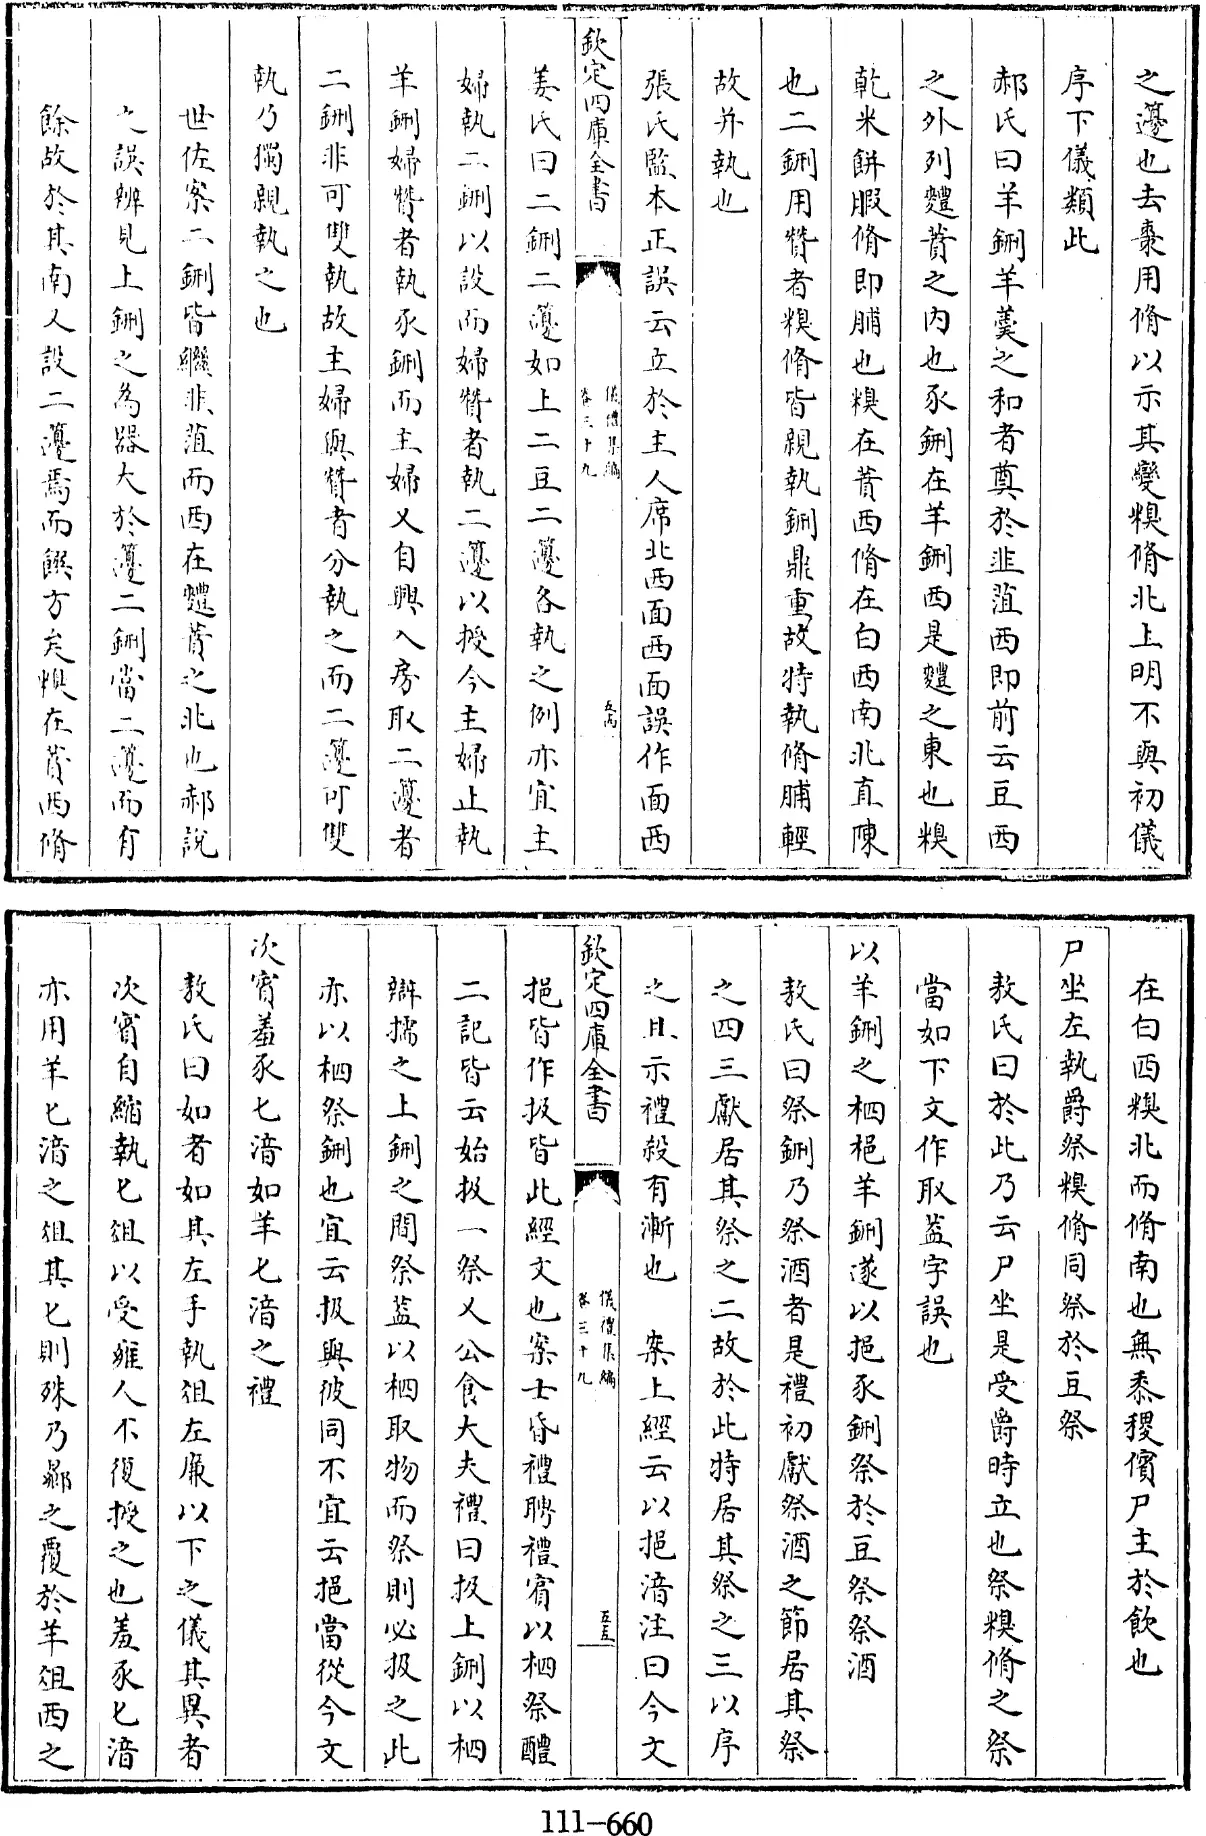 之籩也去棗用脩以示其變糗脩北上明不與初儀
序下儀類此
郝氏曰羊鉶羊羹之和者奠於韭菹西即前云豆西
之外列䵄蕡之內也豕鉶在羊鉶西是䵄之東也糗
乾米餅腶脩即脯也糗在蕡西脩在白西南北直陳
也二鉶用贊者糗脩皆親執鉶鼎重故特執脩脯輕
故并執也
張氏監本正誤云立於主人席北西面西面誤作面西
欽定四庫全書
儀禮集編
卷三十九
五十四
姜氏曰二鉶二籩如上二豆二籩各執之例亦宜主
婦執二鉶以設而婦贊者執二籩以授今主婦止執
羊鉶婦贊者執豕鉶而主婦又自興入房取二籩者
二鉶非可雙執故主婦與贊者分執之而二籩可雙
執乃獨親執之也
世佐案二鉶皆繼韭菹而西在䵄蕡之北也郝說
之誤辨見上鉶之為器大於籩二鉶當二籩而有
餘故於其南又設二籩焉而饌方矣糗在蕡西脩
在白西糗北而脩南也無黍稷儐尸主於飲也
尸坐左執爵祭糗脩同祭於豆祭
敖氏曰於此乃云尸坐是受爵時立也祭糗脩之祭
當如下文作取葢字誤也
以羊鉶之柶挹羊鉶遂以挹豕鉶祭於豆祭祭酒
敖氏曰祭鉶乃祭酒者是禮初獻祭酒之節居其祭
之四三獻居其祭之二故於此特居其祭之三以序
之且示禮殺有漸也　案上經云以挹湆注曰今文
欽定四庫全書
儀禮集編
卷三十九
五十五
挹皆作扱皆此經文也案士昏禮聘禮賓以柶祭醴
二記皆云始扱一祭又公食大夫禮曰扱上鉶以柶
辯擩之上鉶之間祭葢以柶取物而祭則必扱之此
亦以柶祭鉶也宜云扱與彼同不宜云挹當從今文
次賓羞豕匕湆如羊匕湆之禮
敖氏曰如者如其左手執俎左廉以下之儀其異者
次賓自縮執匕俎以受雍人不復授之也羞豕匕湆
亦用羊匕湆之俎其匕則殊乃曏之覆於羊俎西之
111-660